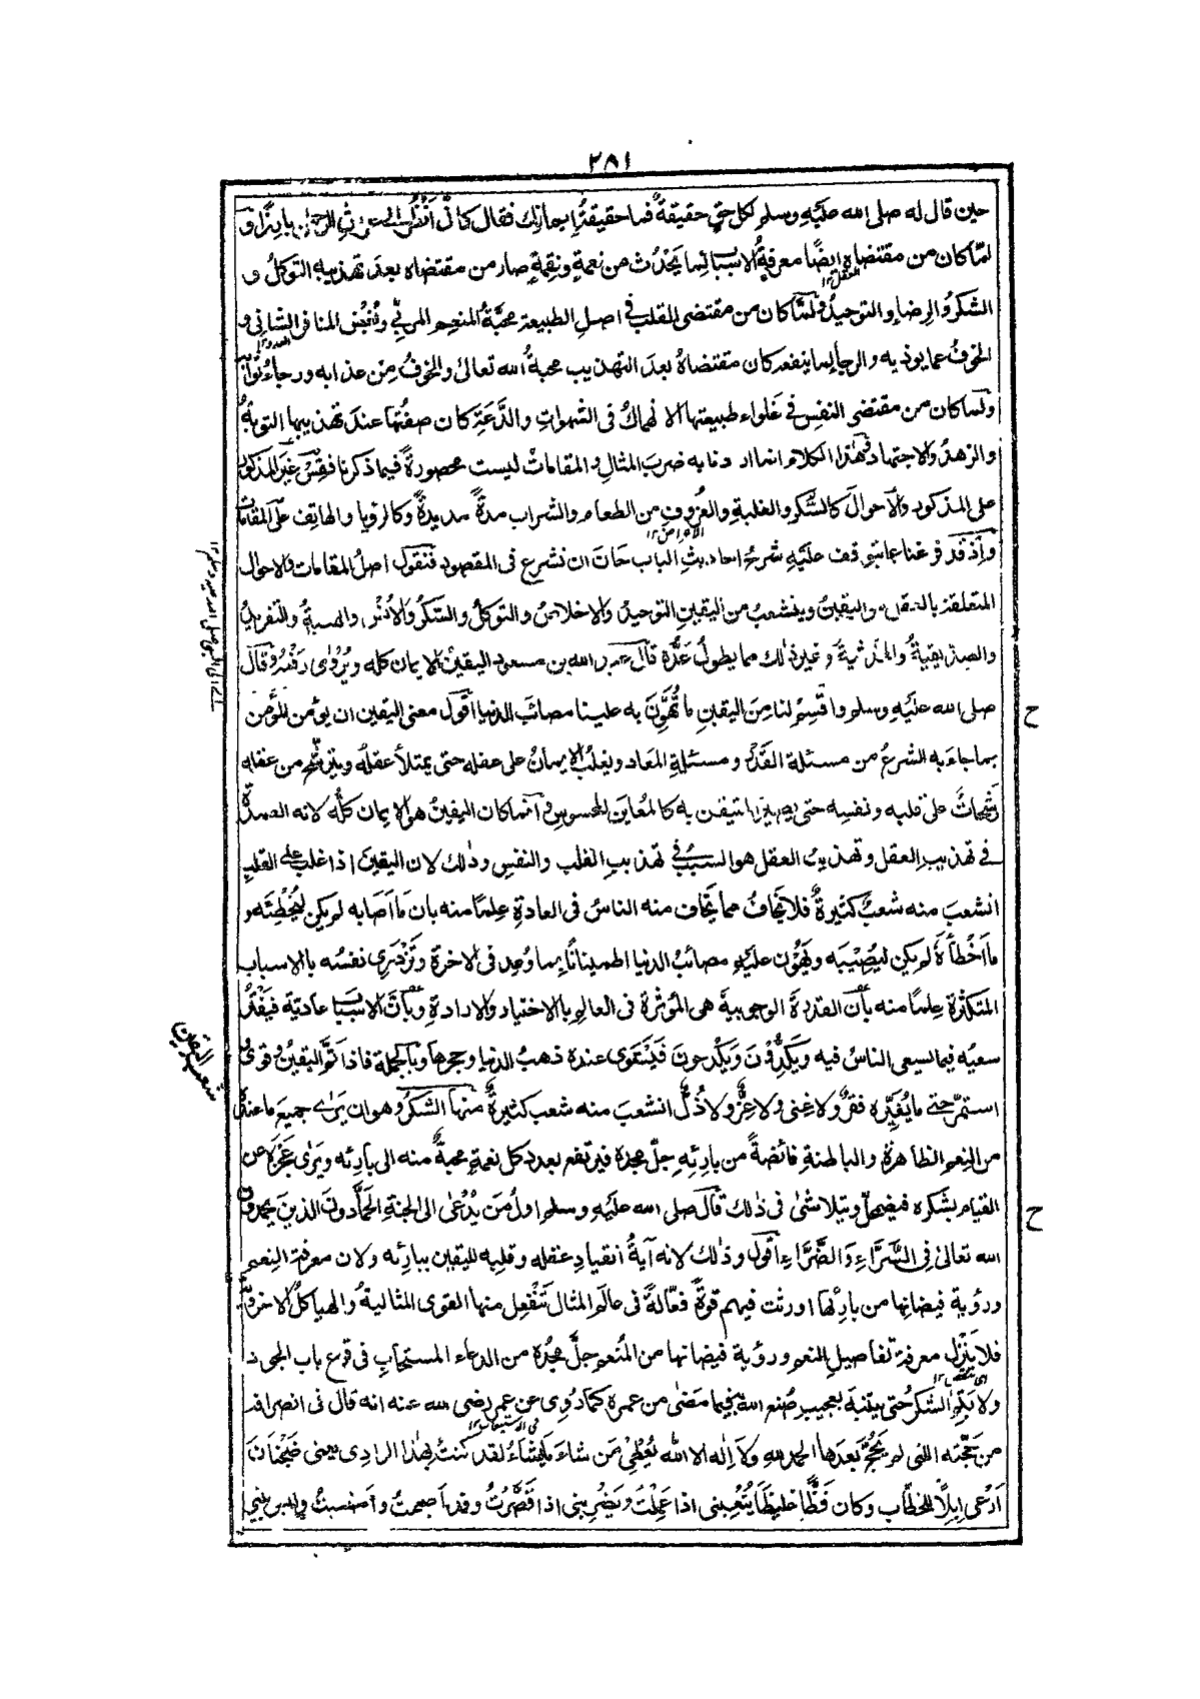 ٢٨١
حين قال له صلى الله عليه وسلم لكل حق حقيقةٌ فما حقيقةُ ايمانك فقال كأنى أنظر الى عرش الرحمٰن بارزًا و
لمّا كان من مقتضاه ايضًا معرفةُ الاسباب لما يَحْدُث من نعمةٍ ونقمةٍ صار من مقتضاه بعدَ تهذيبه التوكلُ و
العقل١٢
الشكرُ والرضاء والتوحيدُ ولمّا كان من مقتضى القلب فى اصل الطبيعة محبّةُ المنعم المربّى وبُغضُ المنافر الشانى و
العدو١٢
الخوفُ عما يوذيه والرجاء لما ينفعه كان مقتضاهُ بعدَ التهذيب محبةُ الله تعالى والخوفُ من عذابه ورجاءُ ثوابه
ولما كان من مقتضى النفس فى غَلواء طبيعتها الانهماكُ فى الشهوات والدَّعَةِ كان صفتُها عند تهذيبها التوبةُ
والزهدُ والاجتهاد وهٰذا الكلام انما اردنا به ضربَ المثال والمقامات ليست محصورةً فيما ذكرنا فقِسْ غيرَ المذكور
على المذكور والاحوالَ كالسُّكر والغلبةِ والعُزوفِ من الطعام والشراب مدةً مديدةً وكالرؤيا والهاتف على المقامات
الاعراض١٢
واذ قد فرغنا عما يتوقف عليه شرحُ احاديث الباب حَانَ ان نشرع فى المقصود فنقول اصلُ المقامات والاحوال
المتعلقة بالعقل هو اليقينُ وينشعبُ من اليقين التوحيدُ والاخلاصُ والتوكلُ والشكرُ والاُنْسُ والهيبةُ والتفريدُ
والصديقيةُ والمحدَّثيةُ وغيرذٰلك مما يطولُ عَدُّه قال عبدالله بن مسعود اليقينُ الايمان كله ويُرْوٰى رَفْعُهُ وقال
صلى الله عليه وسلم واقْسِمْ لنا مِنَ اليقين ما تُهَوِّنُ به علينا مصائبَ الدنيا اقول معنى اليقين ان يؤمن المؤمن
بما جاء به الشرعُ من مسئلة القَدَر ومسئلةِ المَعَاد ويغلبُ الايمانُ على عقله حتى يمتلأ عقلُه ويترشّح من عقله
رَشَحاتٌ على قلبه ونفسه حتى يصيرَ المتيقن به كالمُعاين المحسوس وانما كان اليقينُ هو الايمان كلُّه لانه العمدةُ
فى تهذيبِ العقل وتهذيبُ العقل هو السببُ فى تهذيبِ القلب والنفس وذٰلك لان اليقينَ اذا غلب على القلب
انشعبَ منه شعبٌ كثيرةٌ فلا يخافُ مما يَخاف منه الناسُ فى العادة علمًا منه بان ما اَصَابه لم يكن ليُخطِئَه و
ما اَخْطأَهُ لم يكن ليُصيْبَه ويَهُون عليه مصائبُ الدنيا اطمينانًا بما وُعِد فى الاخرة وتَزْدَرِى نفسُه بالاسباب
المتكثرة علمًا منه بأن القدرةَ الوجوبيةَ هى المؤثرة فى العالم بالاختيار والارادةِ وبأن الاسبابَ عاديةٌ فيَفتُرُ
سعيُه فيما يسعى الناسُ فيه ويَكِدُّوْنَ ويَكْدِحونَ فيَسْتَوى عنده ذهبُ الدنيا وحجرُها وبالجملة فاذا تَمَّ اليقينُ وقوىَ و
استمرّ حتى ما يُغيِّره فقرٌ ولا غِنًى ولا عِزٌّ ولا ذُلٌّ انشعبَ منه شعب كثيرةٌ منها الشكرُ وهو ان يَرٰى جميعَ ما عنده
من النعم الظاهرة والباطنةِ فائضةً من بارئِهِ جلّ مجده فيرتفع بعدد كل نعمةٍ محبةٌ منه الى بارئه ويَرٰى عَجْزَهُ عن
القيام بشكره فيضمحلّ ويتلاشى فى ذٰلك قال صلى الله عليه وسلم اولُ مَن يُدْعٰى الى الجنة الحَمَّادُونَ الذينَ يحمدون
الله تعالىٰ فى السَّرَّاءِ وَالضَّرَّاءِ اقول وذٰلك لانه آيةُ انقيادِ عقله وقلبه لليقين ببارئه ولان معرفة النعم
ورؤيةَ فيضانِها من بارئها اورثت فيهم قوةً فعّالةً فى عالم المثال تَنْفعِل منها القوى المثاليةُ والهياكلُ الاخروية
فلا يَنْزِل معرفةُ تفاصيل النعم ورؤيةُ فيضانها من المُنعم جلَّ مجدُه من الدعاء المستجاب فى قرع باب الجود
ولا يتم الشكرُ حتى يتنبهَ بعجيب صُنع الله فيما مَضٰى من عمره كما رُوى عن عمر رضى الله عنه انه قال فى انصرافه
من حجّته التى لم يَحُجَّ بعدَها الحمد لله ولا اِلٰه الا الله يُعْطِى مَن شاءَ ما يشاءُ لقد كنتُ بهٰذا الوادى يعنى ضَجْنَانَ
اَرْعٰى اِبِلًا للخطّاب وكان فَظًّا غليظًا يُتْعِبنى اذا عَمِلْتُ ويَضْرِبنى اذا قَصَّرْتُ وقد اصبحتُ وامسيتُ وليس بينى
ح
ح
شعب اليقين